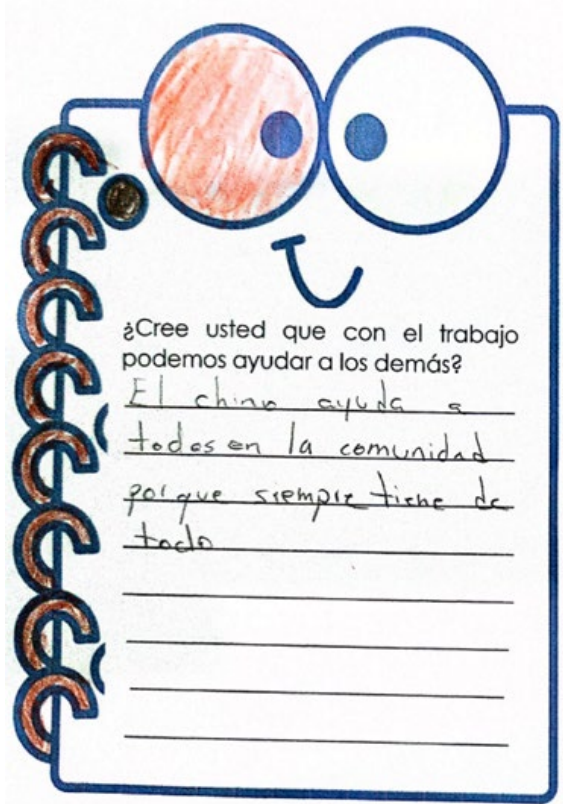 ¿Cree usted que con el trabajo
podemos ayudar a los demás?
El chino ayuda a
todos en la comunidad
porque siempre tiene de
todo